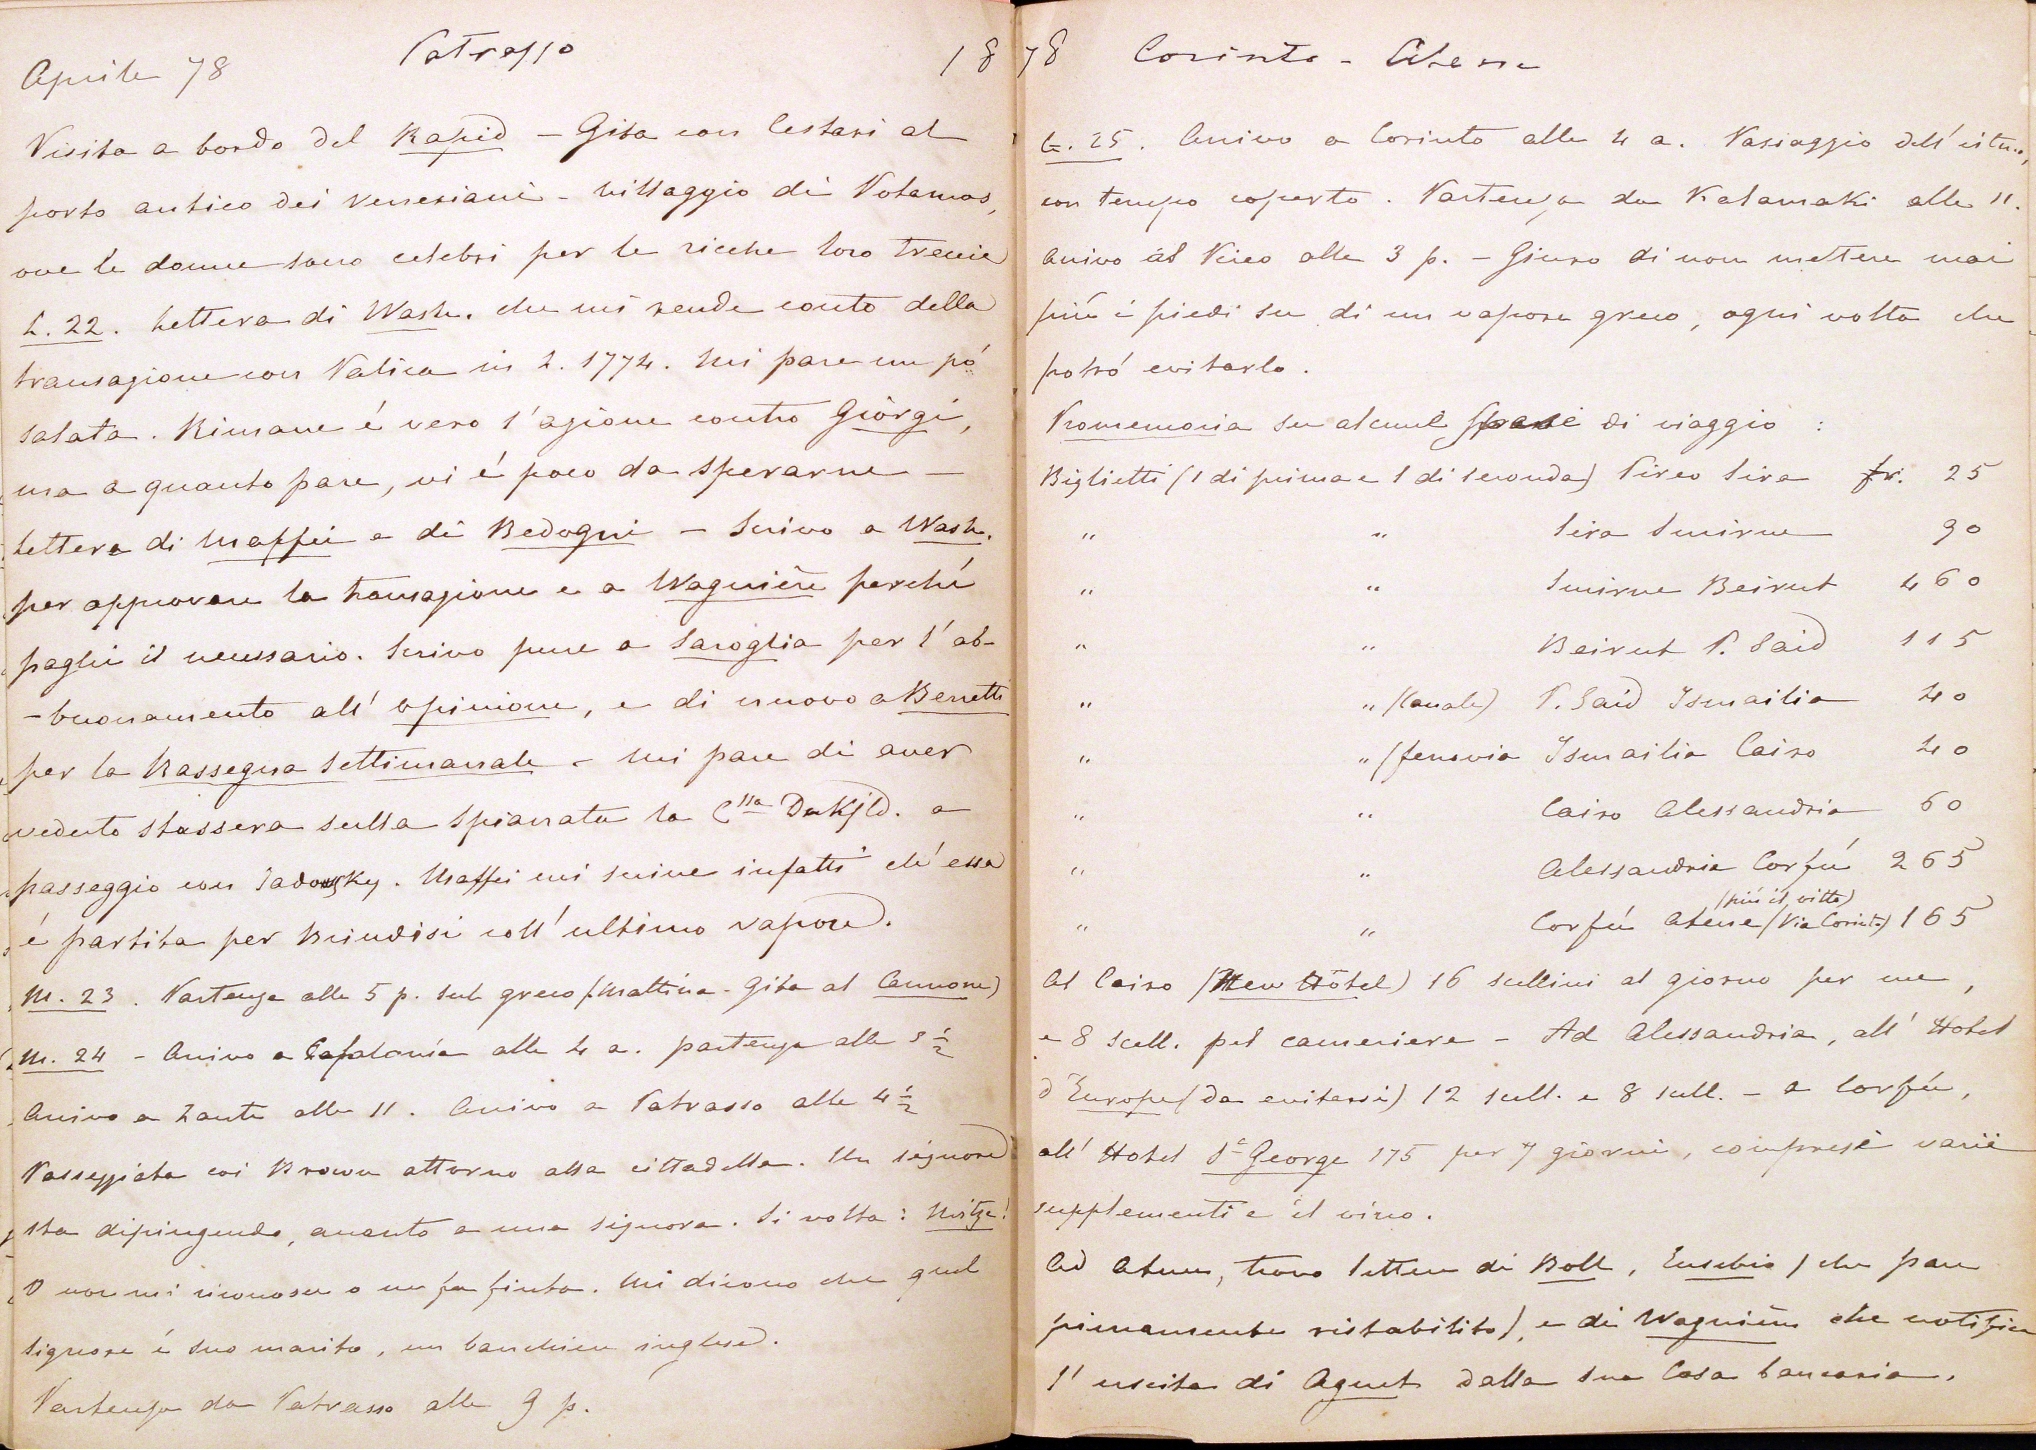 Aprile 78 Patrasso 18
Visita a bordo del Rapid – Gita con Cestari al
porto antico dei veneziani – villaggio di Potamos,
ove le donne sono celebri per le ricche loro treccie
L. 22. Lettera di Wash. che mi rende conto della
transazione con Patica in L. 1774. Mi pare un pó
salata. Rimane é vero l'azione contro Giorgi,
ma a quanto pare, vi é poco da sperarne –
Lettera di Maffei e di Bedogni – Scrivo a Wash.
per approvare la transazione e a Wagnière perché
paghi il necessario. Scrivo pure a Saroglia per l'ab-
-buonamento all'opinione, e di nuovo a Berretti
per la Rassegna Settimanale – Mi pare di aver
veduto stassera sulla Spianata la Cssa Dukjld. a
passeggio con Sadowsky. Maffei mi scrive infatti ch'essa
é partita per Brindisi coll'ultimo vapore.
M. 23. Partenza alle 5 p. sul greco (Mattina - Gita al Cannone)
M. 24 – Arrivo a Cefalonia alle 4 a. partenza alle 5 1/2
Arrivo a Zante alle 11. Arrivo a Patrasso alle 4 1/2
Passeggiata coi Brown attorno alla cittadella. Un signore
sta dipingendo, avanto a una signora. Si volta: Mitze!
O non mi riconosce o ne fa finta. Mi dicono che quel
signore é suo marito, un banchiere inglese.
Partenza da Patrasso alle 9 p.
78 Corinto – Atene
G. 25. Arrivo a Corinto alle 4 a. Passaggio dell'istmo,
con tempo coperto. Partenza da Kalamaki alle 11.
Arrivo al Pireo alle 3 p. – Giuro di non mettere mai
più i piedi su di un vapore greco, ogni volta che
potró evitarlo.
Promemoria su alcune spese di viaggio :
Biglietti (1 di prima e 1 di seconda) Pireo Sira fr. 25
" " Sira Smirne 90
" " Smirne Beirut 460
" " Beirut P. Said 115
" " (Canale) P. Said Ismailia 40
" " (ferrovia Ismailia Cairo 40
" " Cairo Alessandria 60
" " Alessandria Corfú 265
(più il vitto)
" " Corfú Atene (Via Corinto) 165
Al Cairo (New Hôtel) 16 scellini al giorno per me,
e 8 scell. pel cameriere – Ad Alessandria, all'Hotel
d'Europe (da evitarsi) 12 scell. e 8 scell. – a Corfú,
all'Hotel St George 175 per 7 giorni, compresi varii
supplementi e il vino.
Ad Atene, trovo lettere di Boll, Eusebio (che pare
pienamente ristabilito), e di Wagnière che notifica
l'uscita di Aguet dalla sua Casa bancaria.